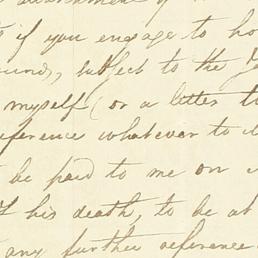 if you engage to ho
ound, subject to the
myself (or a letter t
eference whatever to
be paid to me on
of his death, to be at
any further reference